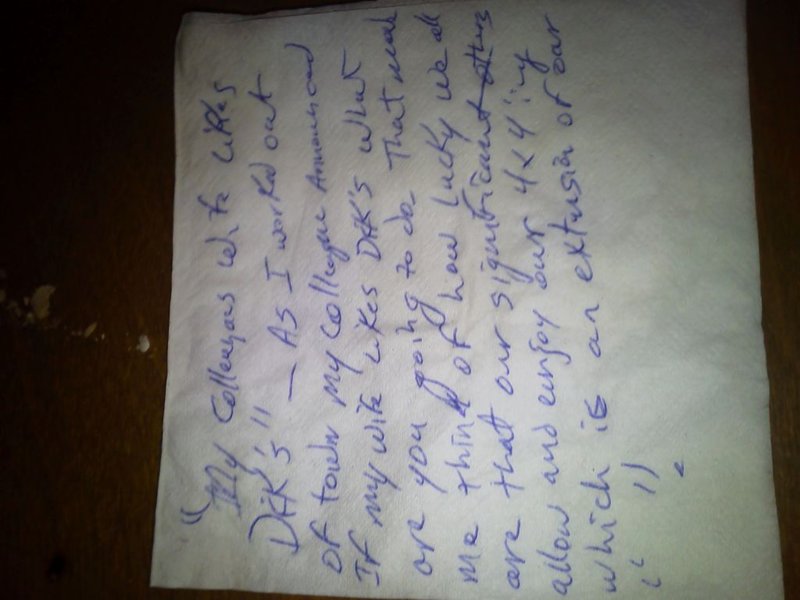 "My Colleagues wife likes
DIK'S" — AS I worked out
of town my colleague Announced
If my wife likes DIK'S what
are you going to do That made
me think of how lucky we all
are that our significant others
allow and enjoy our 4x4'ing
which is an extension of our
" "